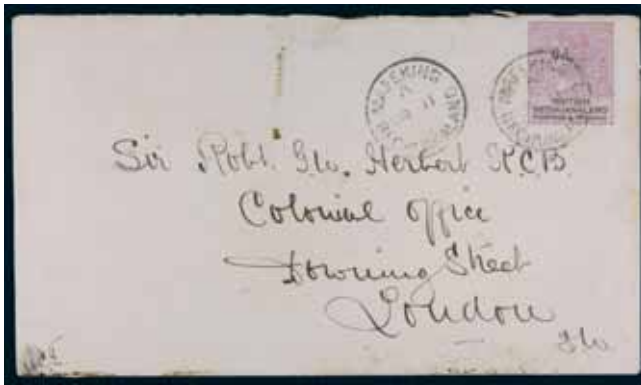 MAFEKING
MAFEKING
BRITISH
BECHUANALAND
Sir Robt. G. W. Herbert K.C.B.
Colonial Office
Downing Street
London
S W